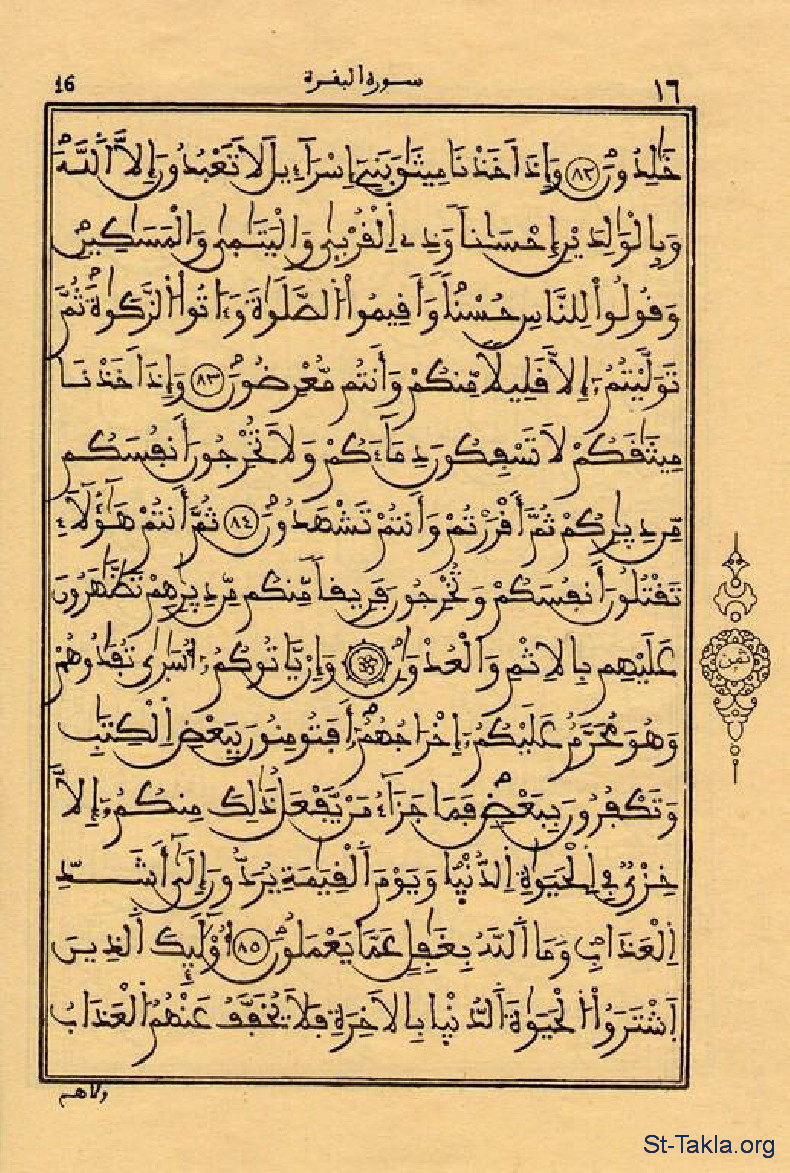 16 سورة البفرة ١٦
خَٰلِدُونَ ٨٢ وَإِذَ اَخَذْنَا مِيثَٰقَ بَنِےٓ إِسْرَآءِيلَ لَا تَعْبُدُونَ إِلَّا اَللَّهَ
وَبِالْوَٰلِدَيْنِ إِحْسَاناً وَذِے اِلْفُرْبۭيٰ وَالْيَتَٰمۭيٰ وَالْمَسَٰكِينِ
وَفُولُواْ لِلنَّاسِ حُسْناً وَأَفِيمُواْ اُلصَّلَوٰةَ وَءَاتُواْ اُلزَّكَوٰةَ ثُمَّ
تَوَلَّيْتُمُۥٓ إِلَّا فَلِيلًا مِّنكُمْ وَأَنتُم مُّعْرِضُونَ ٨٣ وَإِذَ اَخَذْنَا
مِيثَٰفَكُمْ لَا تَسْفِكُونَ دِمَآءَكُمْ وَلَا تُخْرِجُونَ أَنفُسَكُم
مِّن دِيٰ۪رِكُمْ ثُمَّ أَفْرَرْتُمْ وَأَنتُمْ تَشْهَدُونَ ٨٤ ثُمَّ أَنتُمْ هَٰٓؤُلَآءِ
تَفْتُلُونَ أَنفُسَكُمْ وَتُخْرِجُونَ فَرِيفاً مِّنكُم مِّن دِيٰ۪رِهِمْ تَظَّٰهَرُونَ
عَلَيْهِم بِالِاثْمِ وَالْعُدْوَٰنِ وَإِنْ يَّاتُوكُمُۥٓ أُسَٰرۭيٰ تُفَٰدُوهُمْ
وَهُوَ مُحَرَّمٌ عَلَيْكُمُۥٓ إِخْرَاجُهُمُۥٓ أَفَتُومِنُونَ بِبَعْضِ اِلْكِتَٰبِ
وَتَكْفُرُونَ بِبَعْضٍ فَمَا جَزَآءُ مَنْ يَّفْعَلُ ذَٰلِكَ مِنكُمُۥٓ إِلَّا
خِزْيٌ فِے اِلْحَيَوٰةِ اِلدُّنْي۪ا وَيَوْمَ اَلْفِيَٰمَةِ يُرَدُّونَ إِلَيٰٓ أَشَدِّ
اِلْعَذَابِ وَمَا اَللَّهُ بِغَٰفِلٍ عَمَّا يَعْمَلُونَ ٨٥ أُوْلَٰٓئِكَ اَلذِينَ
اَشْتَرَوُاْ اُلْحَيَوٰةَ اَلدُّنْي۪ا بِالَاخِرَةِ فَلَا يُخَفَّفُ عَنْهُمُ اُلْعَذَابُ
ولاهم
ثمن
St-Takla.org